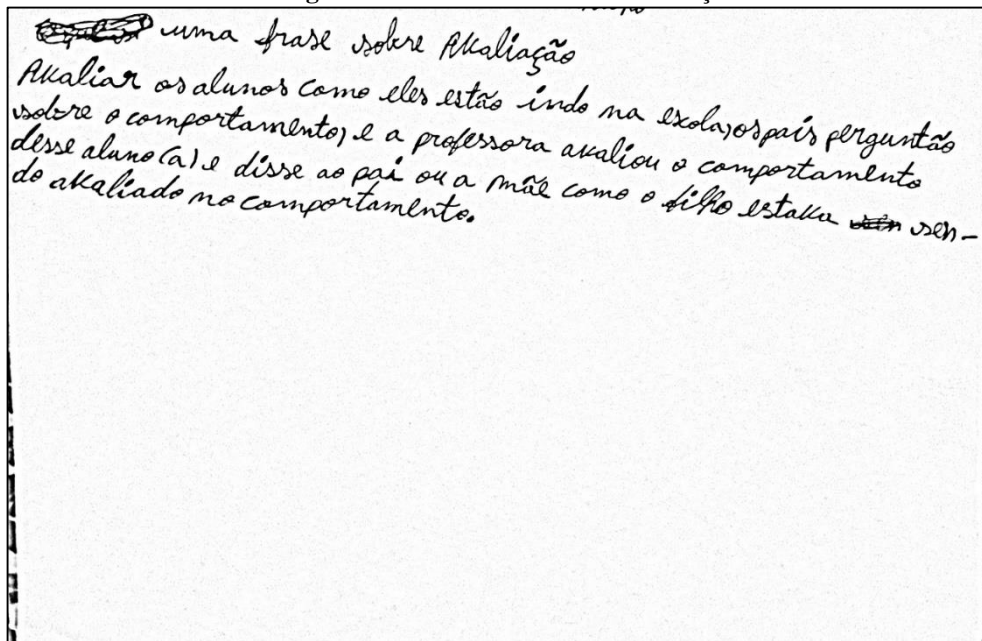 uma frase sobre Avaliação
Avaliar os alunos como eles estão indo na escola, os pais perguntão
sobre o comportamento, e a professora avaliou o comportamento
desse aluno(a) e disse ao pai ou a mãe como o filho estava sen-
do avaliado no comportamento.